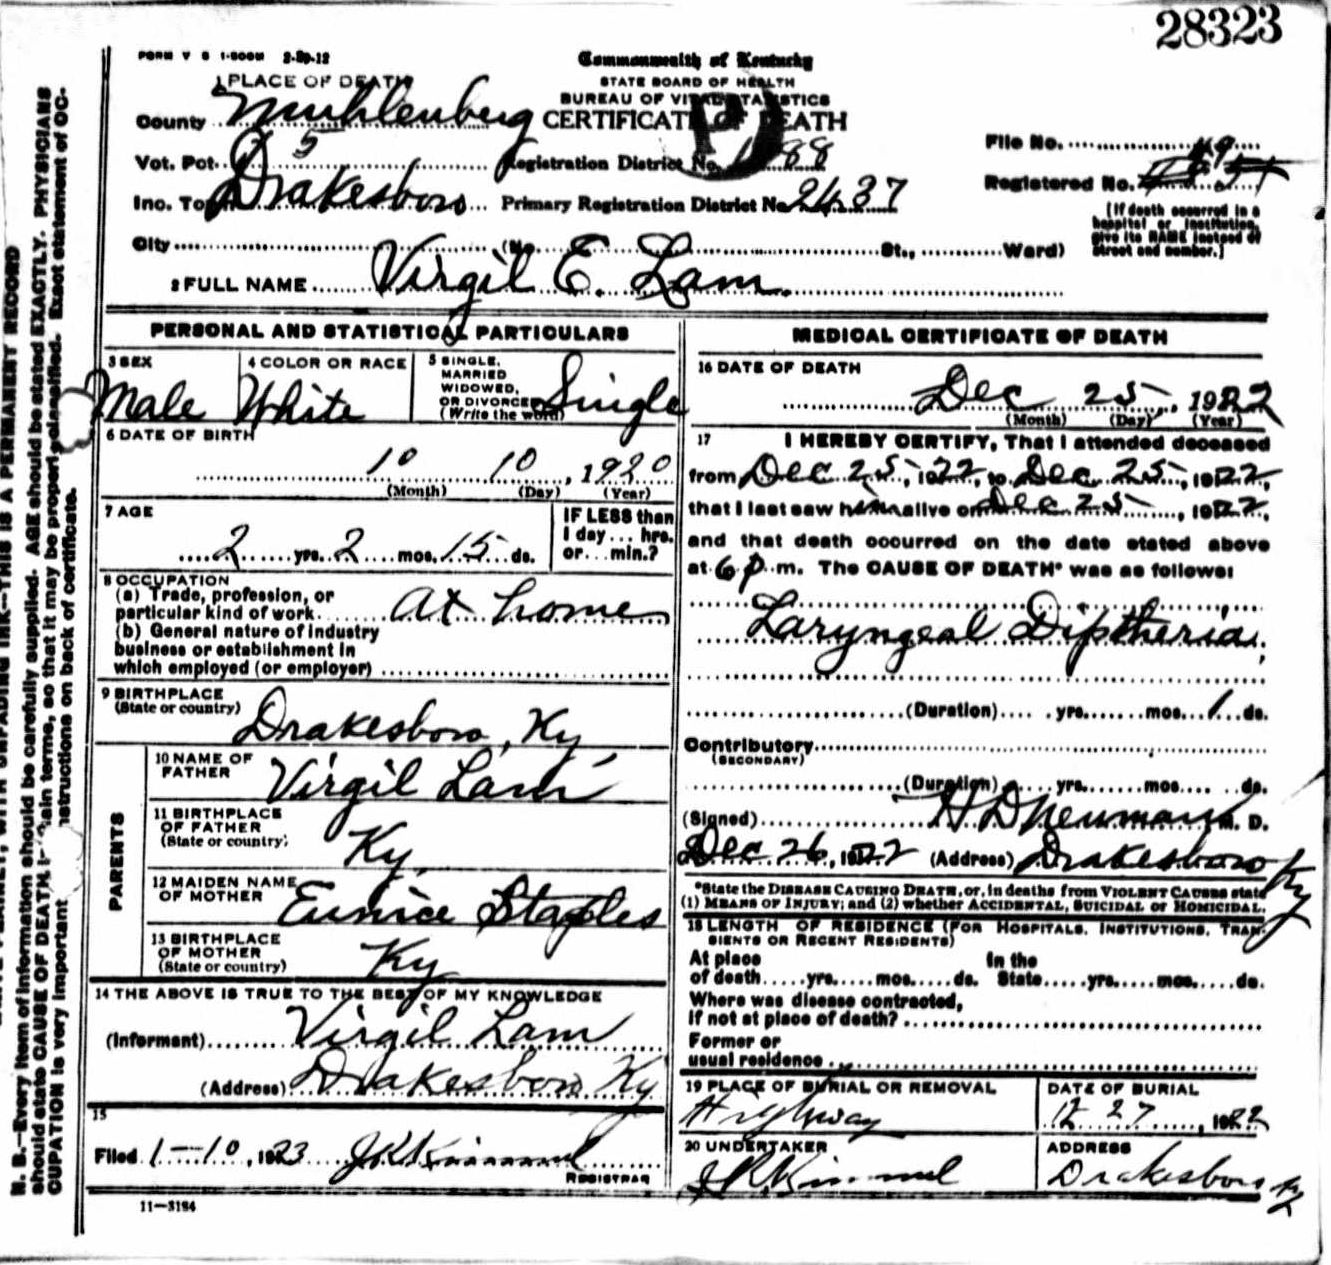 28323
FORM V S 1-500M 2-20-12
Commonwealth of Kentucky
STATE BOARD OF HEALTH
BUREAU OF VITAL STATISTICS
CERTIFICATE OF DEATH
1 PLACE OF DEATH
County Muhlenberg
Vot. Pct. 5
Registration District No. 1088
Inc. Town Drakesboro
Primary Registration District No. 2437
City (No. St., Ward)
File No.
Registered No. 49
[If death occurred in a
hospital or institution,
give its NAME instead of
street and number.]
2 FULL NAME Virgil E. Lam.
PERSONAL AND STATISTICAL PARTICULARS
3 SEX
Male
4 COLOR OR RACE
White
5 SINGLE,
MARRIED
WIDOWED,
OR DIVORCED
(Write the word)
Single
6 DATE OF BIRTH
10 10, 1920
(Month) (Day) (Year)
7 AGE
2 yrs. 2 mos. 15 ds.
IF LESS than
1 day... hrs.
or... min.?
8 OCCUPATION
(a) Trade, profession, or
particular kind of work At home
(b) General nature of industry
business or establishment in
which employed (or employer)
9 BIRTHPLACE
(State or country)
Drakesboro, Ky
PARENTS
10 NAME OF
FATHER
Virgil Lam
11 BIRTHPLACE
OF FATHER
(State or country)
Ky
12 MAIDEN NAME
OF MOTHER
Eunice Staples
13 BIRTHPLACE
OF MOTHER
(State or country)
Ky
14 THE ABOVE IS TRUE TO THE BEST OF MY KNOWLEDGE
(Informant) Virgil Lam
(Address) Drakesboro Ky
15
Filed 1-10, 1923 J R Kimmel
REGISTRAR
11-3184
MEDICAL CERTIFICATE OF DEATH
16 DATE OF DEATH
Dec 25, 1922
(Month) (Day) (Year)
17 I HEREBY CERTIFY, That I attended deceased
from Dec 25, 1922, to Dec 25, 1922,
that I last saw him alive on Dec 25, 1922,
and that death occurred on the date stated above
at 6 p m. The CAUSE OF DEATH* was as follows:
Laryngeal Diptheria
(Duration) yrs. mos. 1 ds.
Contributory
(SECONDARY)
(Duration) yrs. mos. ds.
(Signed) H D Neuman M. D.
Dec 26, 1922 (Address) Drakesboro Ky
*State the DISEASE CAUSING DEATH, or, in deaths from VIOLENT CAUSES state
(1) MEANS OF INJURY; and (2) whether ACCIDENTAL, SUICIDAL or HOMICIDAL.
18 LENGTH OF RESIDENCE (FOR HOSPITALS, INSTITUTIONS, TRAN-
SIENTS OR RECENT RESIDENTS)
At place In the
of death yrs. mos. ds. State yrs. mos. ds.
Where was disease contracted,
if not at place of death?
Former or
usual residence
19 PLACE OF BURIAL OR REMOVAL
Highway
DATE OF BURIAL
12 27, 1922
20 UNDERTAKER
J R Kimmel
ADDRESS
Drakesboro Ky
N. B.—Every item of information should be carefully supplied. AGE should be stated EXACTLY. PHYSICIANS
should state CAUSE OF DEATH in plain terms, so that it may be properly classified. Exact statement of OC-
CUPATION is very important instructions on back of certificate.